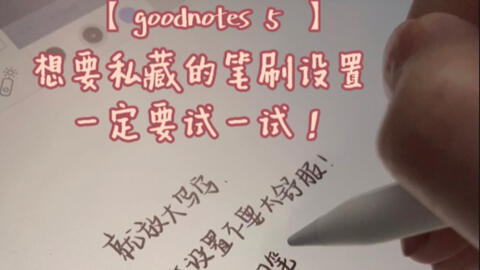 【 goodnotes 5 】
想要私藏的笔刷设置
一定要试一试！
就放大写写.
设置不要太舒服!
笔